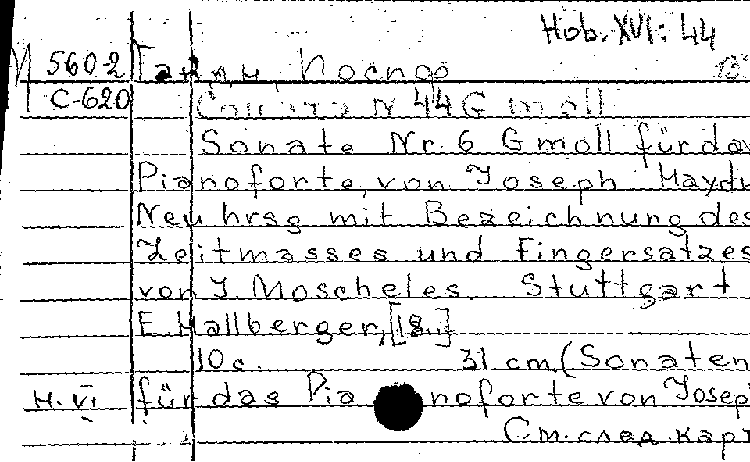 Hob. XVI: 44
M 560-2 Гайдн, Иосиф
C-620 Соната N 44 G moll
Sonate Nr. 6 G moll für das
Pianoforte, von Joseph Haydn
Neu hrsg mit Bezeichnung des
Zeitmasses und Fingersatzes
von J. Moscheles. Stuttgart
E. Hallberger, [18..]
10 с. 31 cm (Sonaten
H. VI für das Pianoforte von Josep
См. след. карт